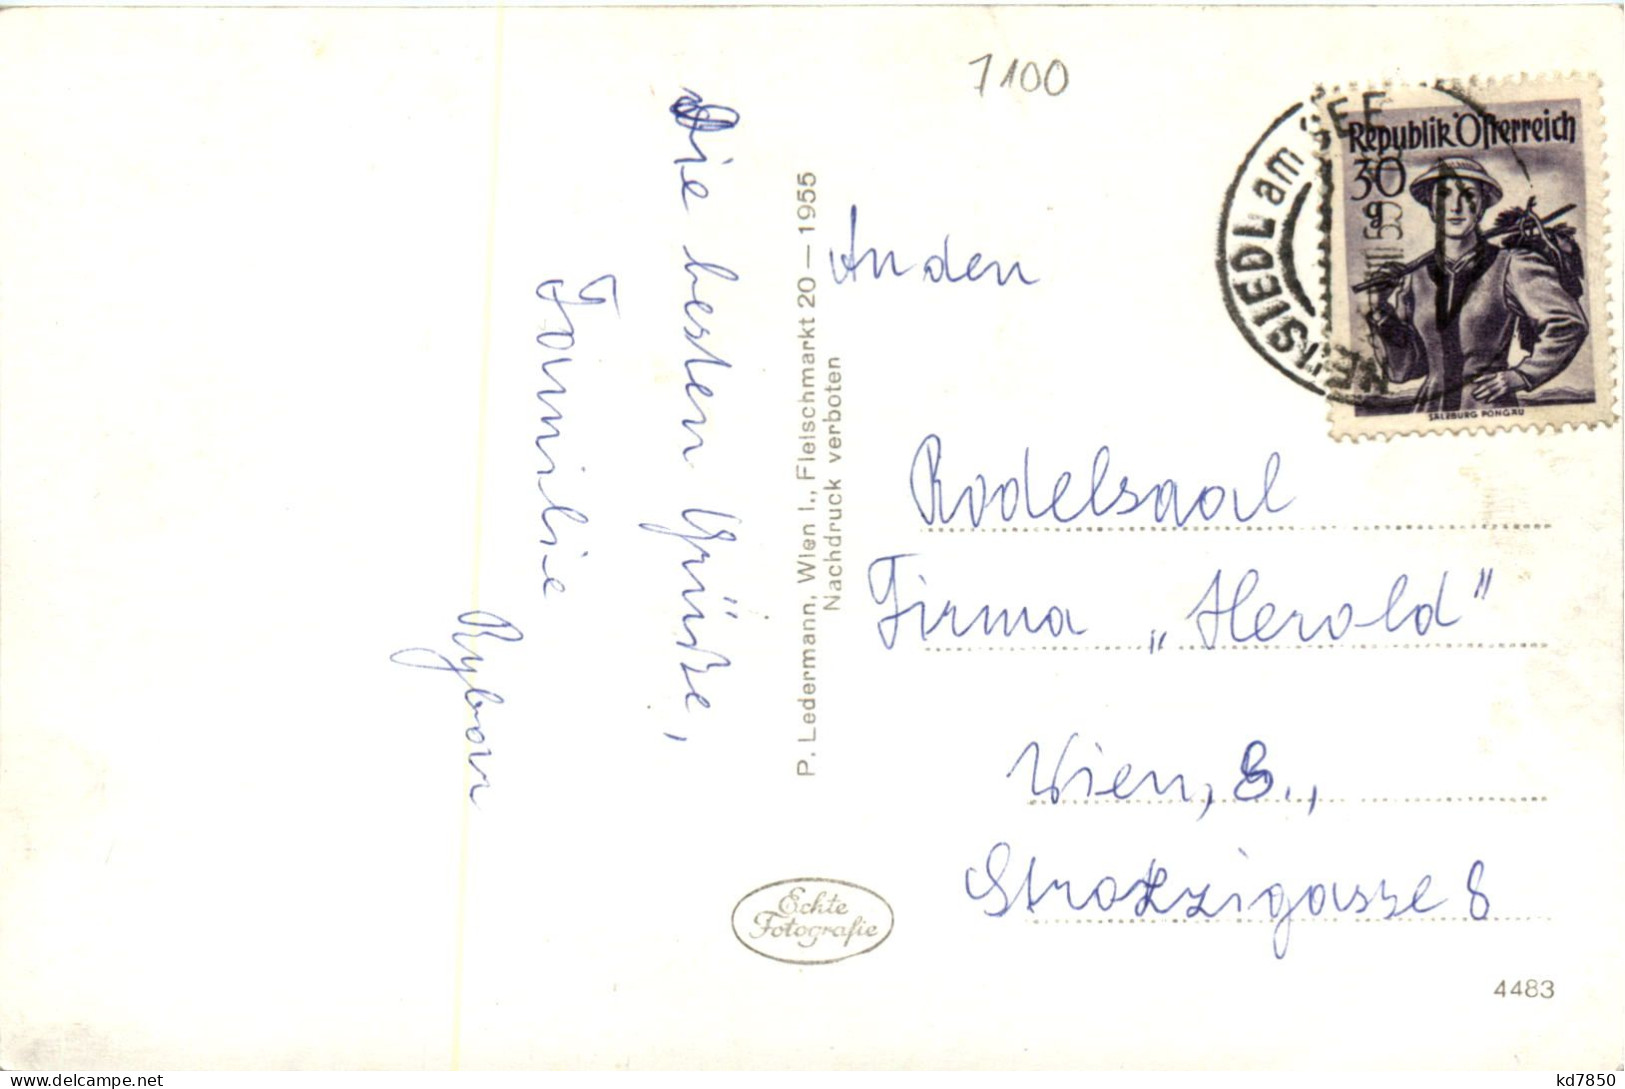 7100
Die besten Grüße,
Familie
P. Ledermann, Wien I., Fleischmarkt 20 — 1955
Nachdruck verboten
NEUSIEDL am SEE
Republik Österreich
30
g
SALZBURG PONGAU
An den
Rodelsaal
Firma „Herold"
Wien, 8.,
Strozzigasse 8
Echte
Fotografie
4483
kd7850